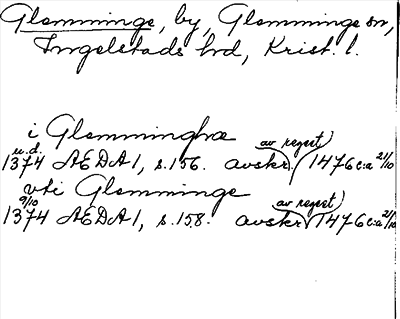 Glemminge, by, Glemminge sn,
Ingelstads hd, Krist. l.
i Glemminghæ
u.d. av regest)
1374 ÆDA 1, s. 156. avskr. (1476 e:a 21/10
vti Glemminge
9/10 av regest)
1374 ÆDA 1, s. 158. avskr (1476 e:a 21/10